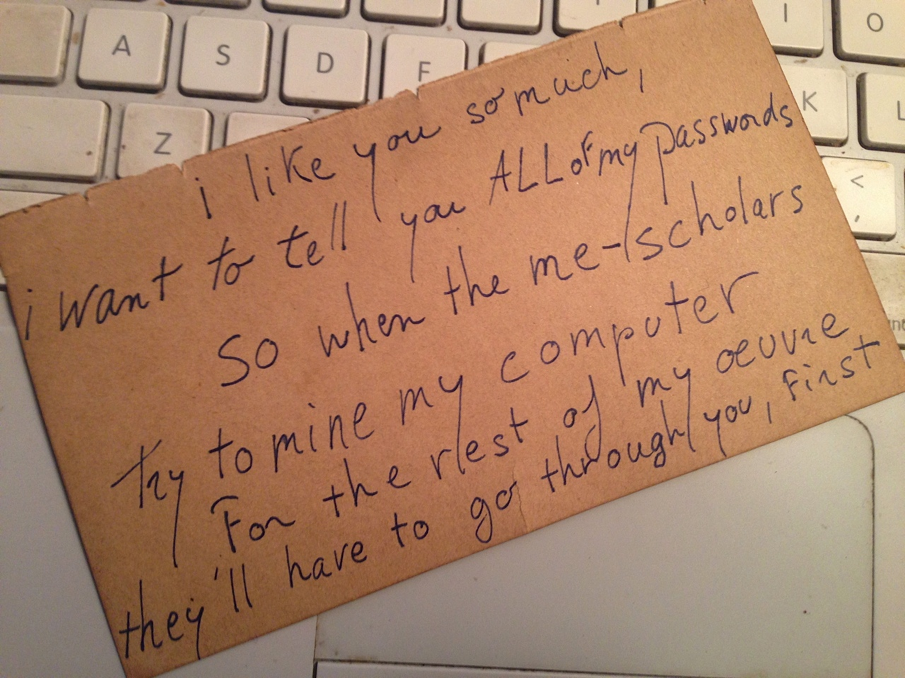 A S D F I O
Z K L
< ,
i like you so much,
i want to tell you ALL of my passwords
So when the me-scholars
try to mine my computer
For the rest of my oeuvre
they'll have to go through you, First